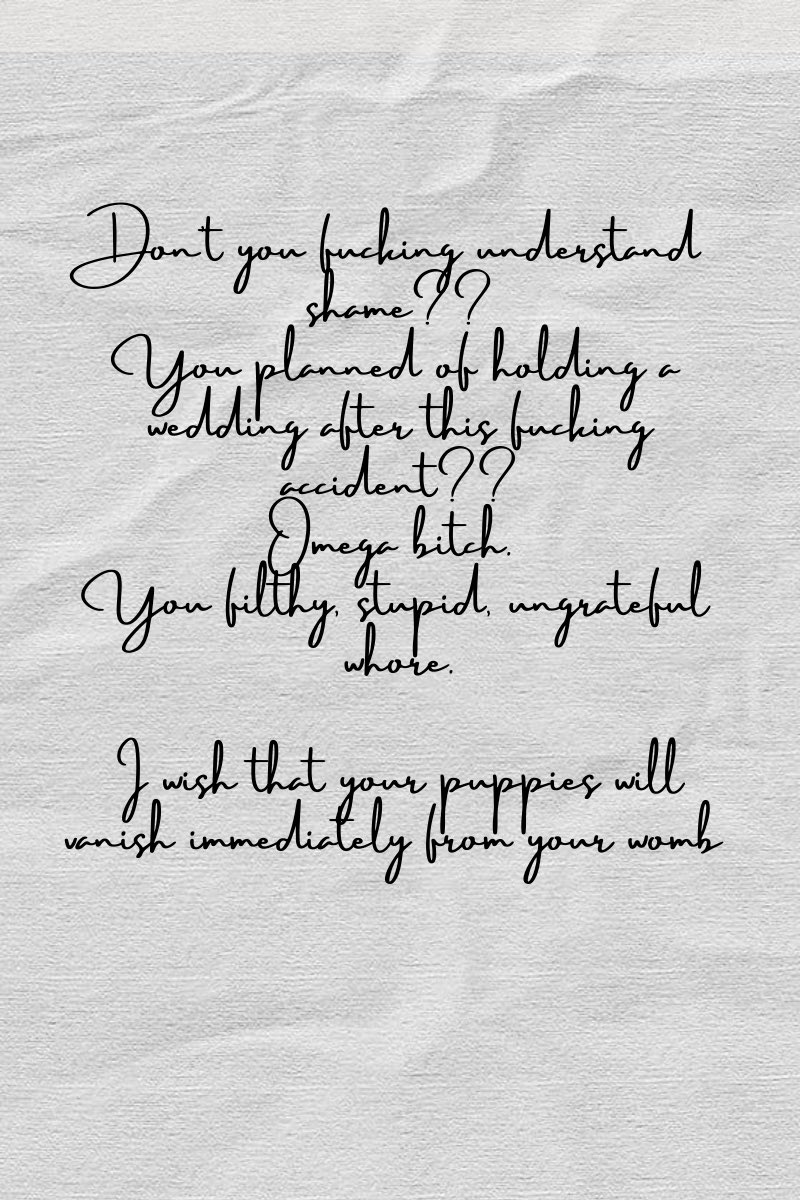 Don't you fucking understand
shame??
You planned of holding a
wedding after this fucking
accident??
Omega bitch.
You filthy, stupid, ungrateful
whore.
I wish that your puppies will
vanish immediately from your womb